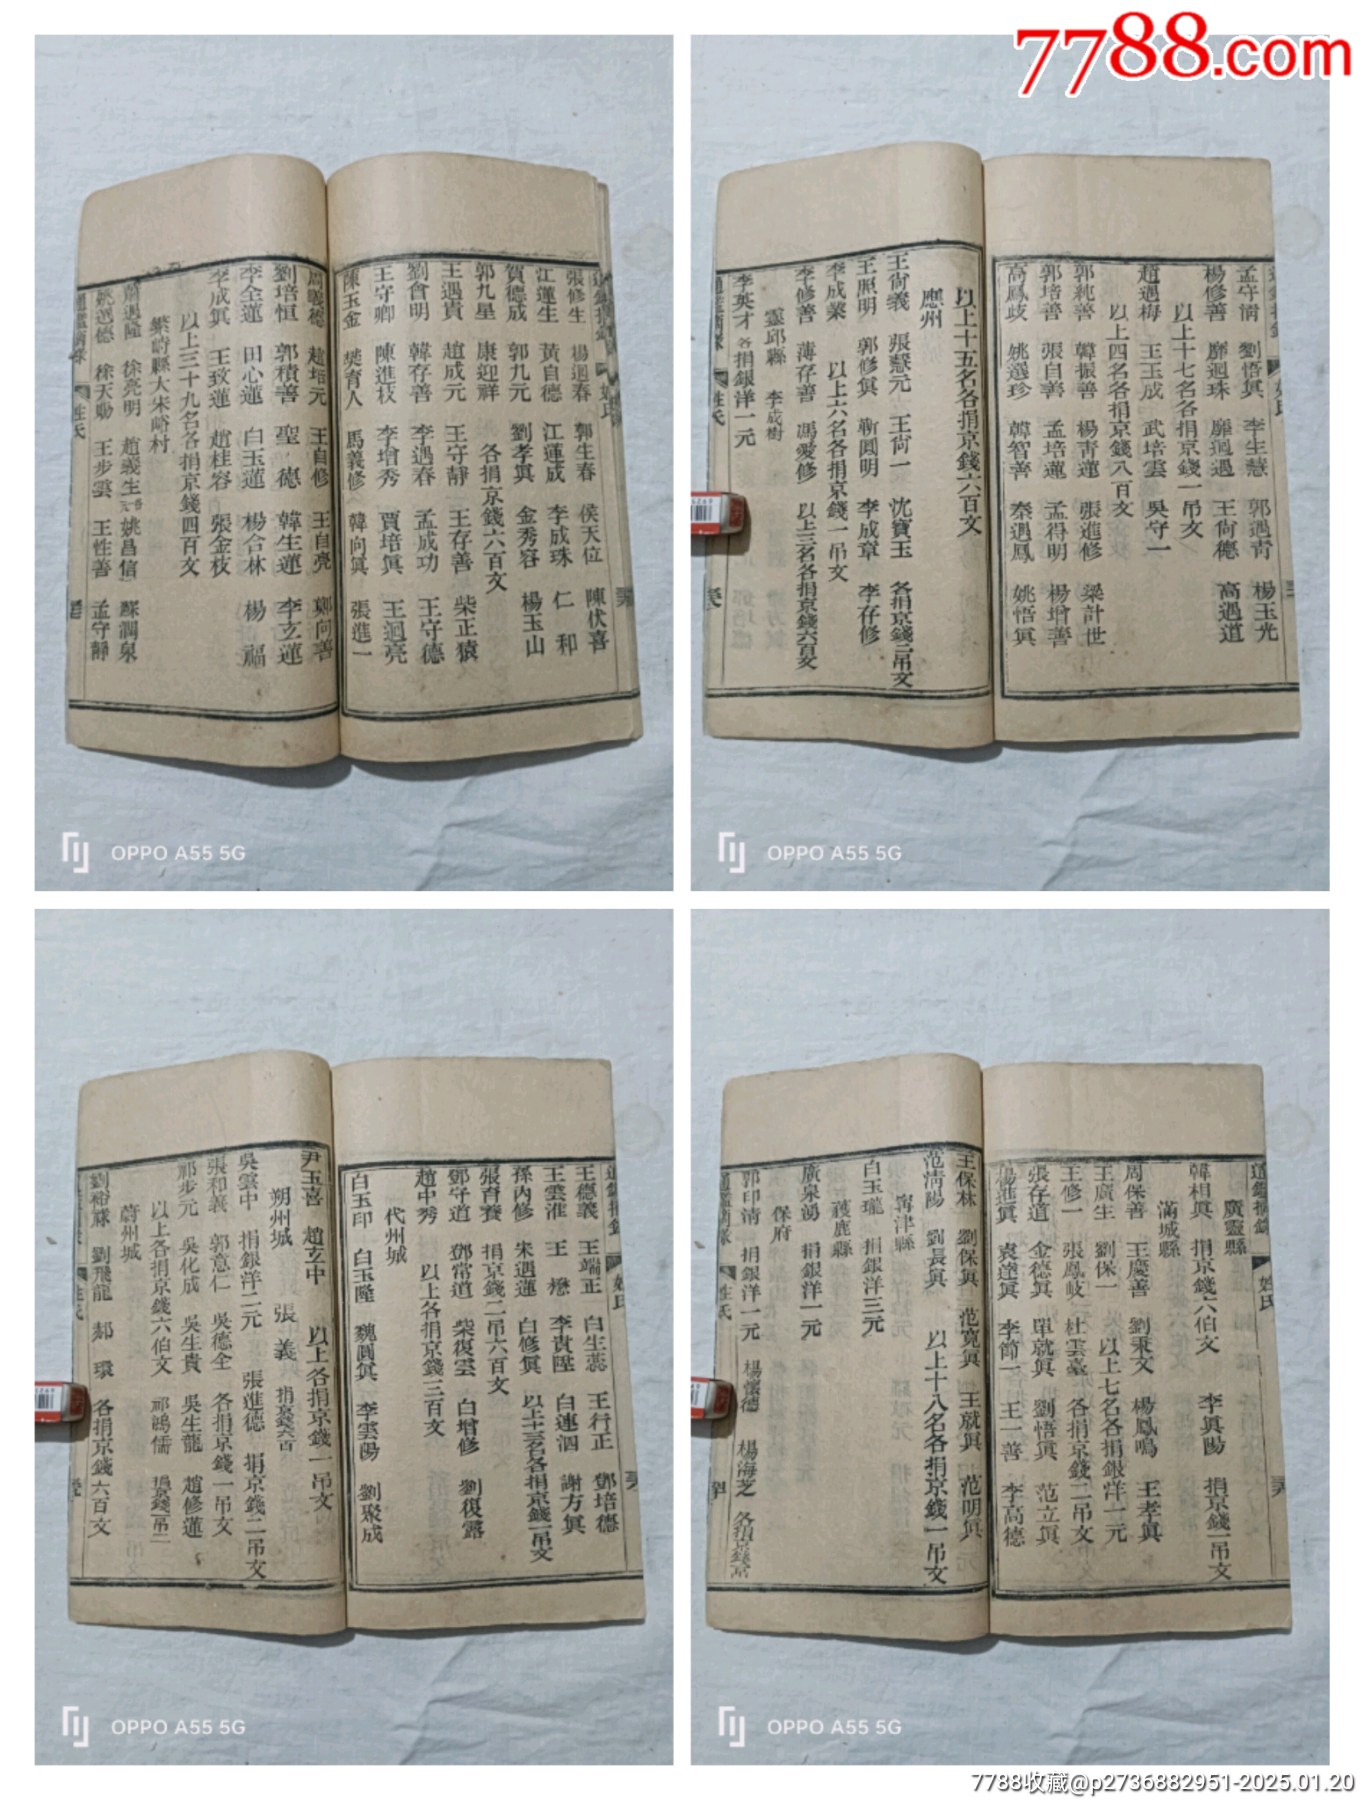 7788.com
張修生 楊迴春 郭生春 侯天位 陳伏喜
江蓮生 黃自德 江運成 李成珠 仁和
賀德成 郭九元 劉孝眞 金秀容 楊玉山
郭九星 康迎祥 各捐京錢六百文
王遇貴 趙成元 王守靜 王存善 柴正猿
劉會明 韓存善 李遇春 孟成功 王守德
王守卿 陳進枝 李增秀 賈培眞 王迴亮
陳玉金 樊育人 馬義修 韓向眞 張進一
周曖德 趙培元 王自修 王自亮 鄭向善
劉培恒 郭積善 聖德 韓生蓮 李玄蓮
李全蓮 田心蓮 白玉蓮 楊合林 楊福
李成眞 王致蓮 趙桂容 張金枝
以上三十九名各捐京錢四百文
繁峙縣大宋峪村
蕭遇隆 徐亮明 趙義生 姚昌信 蘇潤泉
姚選德 徐天勤 王步雲 王性善 孟守靜
通鑑摘錄 姓氏
孟守清 劉悟眞 李生慧 郭遇靑 楊玉光
楊修善 靡迴珠 靡迴遇 王尙德 高遇道
以上十七名各捐京錢一吊文
趙遇梅 王玉成 武培雲 吳守一
以上四名各捐京錢八百文
郭純善 韓振善 楊靑蓮 張進修 梁計世
郭培善 張自善 孟培蓮 孟得明 楊增善
高鳳歧 姚選珍 韓智善 秦遇鳳 姚悟眞
以上十五名各捐京錢六百文
應州
王尙義 張慧元 王尙一 沈寶玉 各捐京錢二吊文
王照明 郭修眞 靳圓明 李成章 李存修
李成榮 以上六名各捐京錢一吊文
李修善 薄存善 馮愛修 以上三名各捐京錢六百文
靈邱縣 李成樹
李英才 各捐銀洋一元
姓氏
OPPO A55 5G
OPPO A55 5G
王德義 王端正 白生蕊 王行正 鄧培德
王雲淮 王懋 李貴陞 白連泗 謝方眞
孫內修 宋遇蓮 白修眞 以上十三名各捐京錢一吊文
張育賽 捐京錢二吊六百文
鄧守道 鄧常道 柴復雲 白增修 劉復露
趙中秀 以上各捐京錢三百文
代州城
白玉印 白玉隆 魏圓眞 李雲陽 劉聚成
尹玉喜 趙玄中 以上各捐京錢一吊文
朔州城 張義 捐京錢六百
吳雲中 捐銀洋二元 張進德 捐京錢二吊文
張和義 郭意仁 吳德全 各捐京錢一吊文
祁步元 吳化成 吳生貴 吳生龍 趙修蓮
以上各捐京錢六伯文 祁鴻儒 捐京錢一吊二
蔚州城
劉裕祿 劉飛龍 郝環 各捐京錢六百文
姓氏
廣靈縣
韓相眞 捐京錢六伯文 李眞陽 捐京錢一吊文
滿城縣
周保善 王慶善 劉秉文 楊鳳鳴 王孝眞
王廣生 劉保一 以上七名各捐銀洋一元
王修一 張鳳岐 杜雲臺 各捐京錢二吊文
張存道 金德眞 單就眞 劉悟眞 范立眞
楊進眞 袁達眞 李節一 王一善 李高德
王保林 劉保眞 范寬眞 王就眞 范明眞
范淸陽 劉長眞 以上十八名各捐京錢一吊文
寗津縣
白玉瓏 捐銀洋三元
蒦鹿縣
廣泉湧 捐銀洋一元
保府
郭印淸 捐銀洋一元 楊懷德 楊海芝 各捐京錢一吊
姓氏
OPPO A55 5G
OPPO A55 5G
7788收藏@p2736882951-2025.01.20